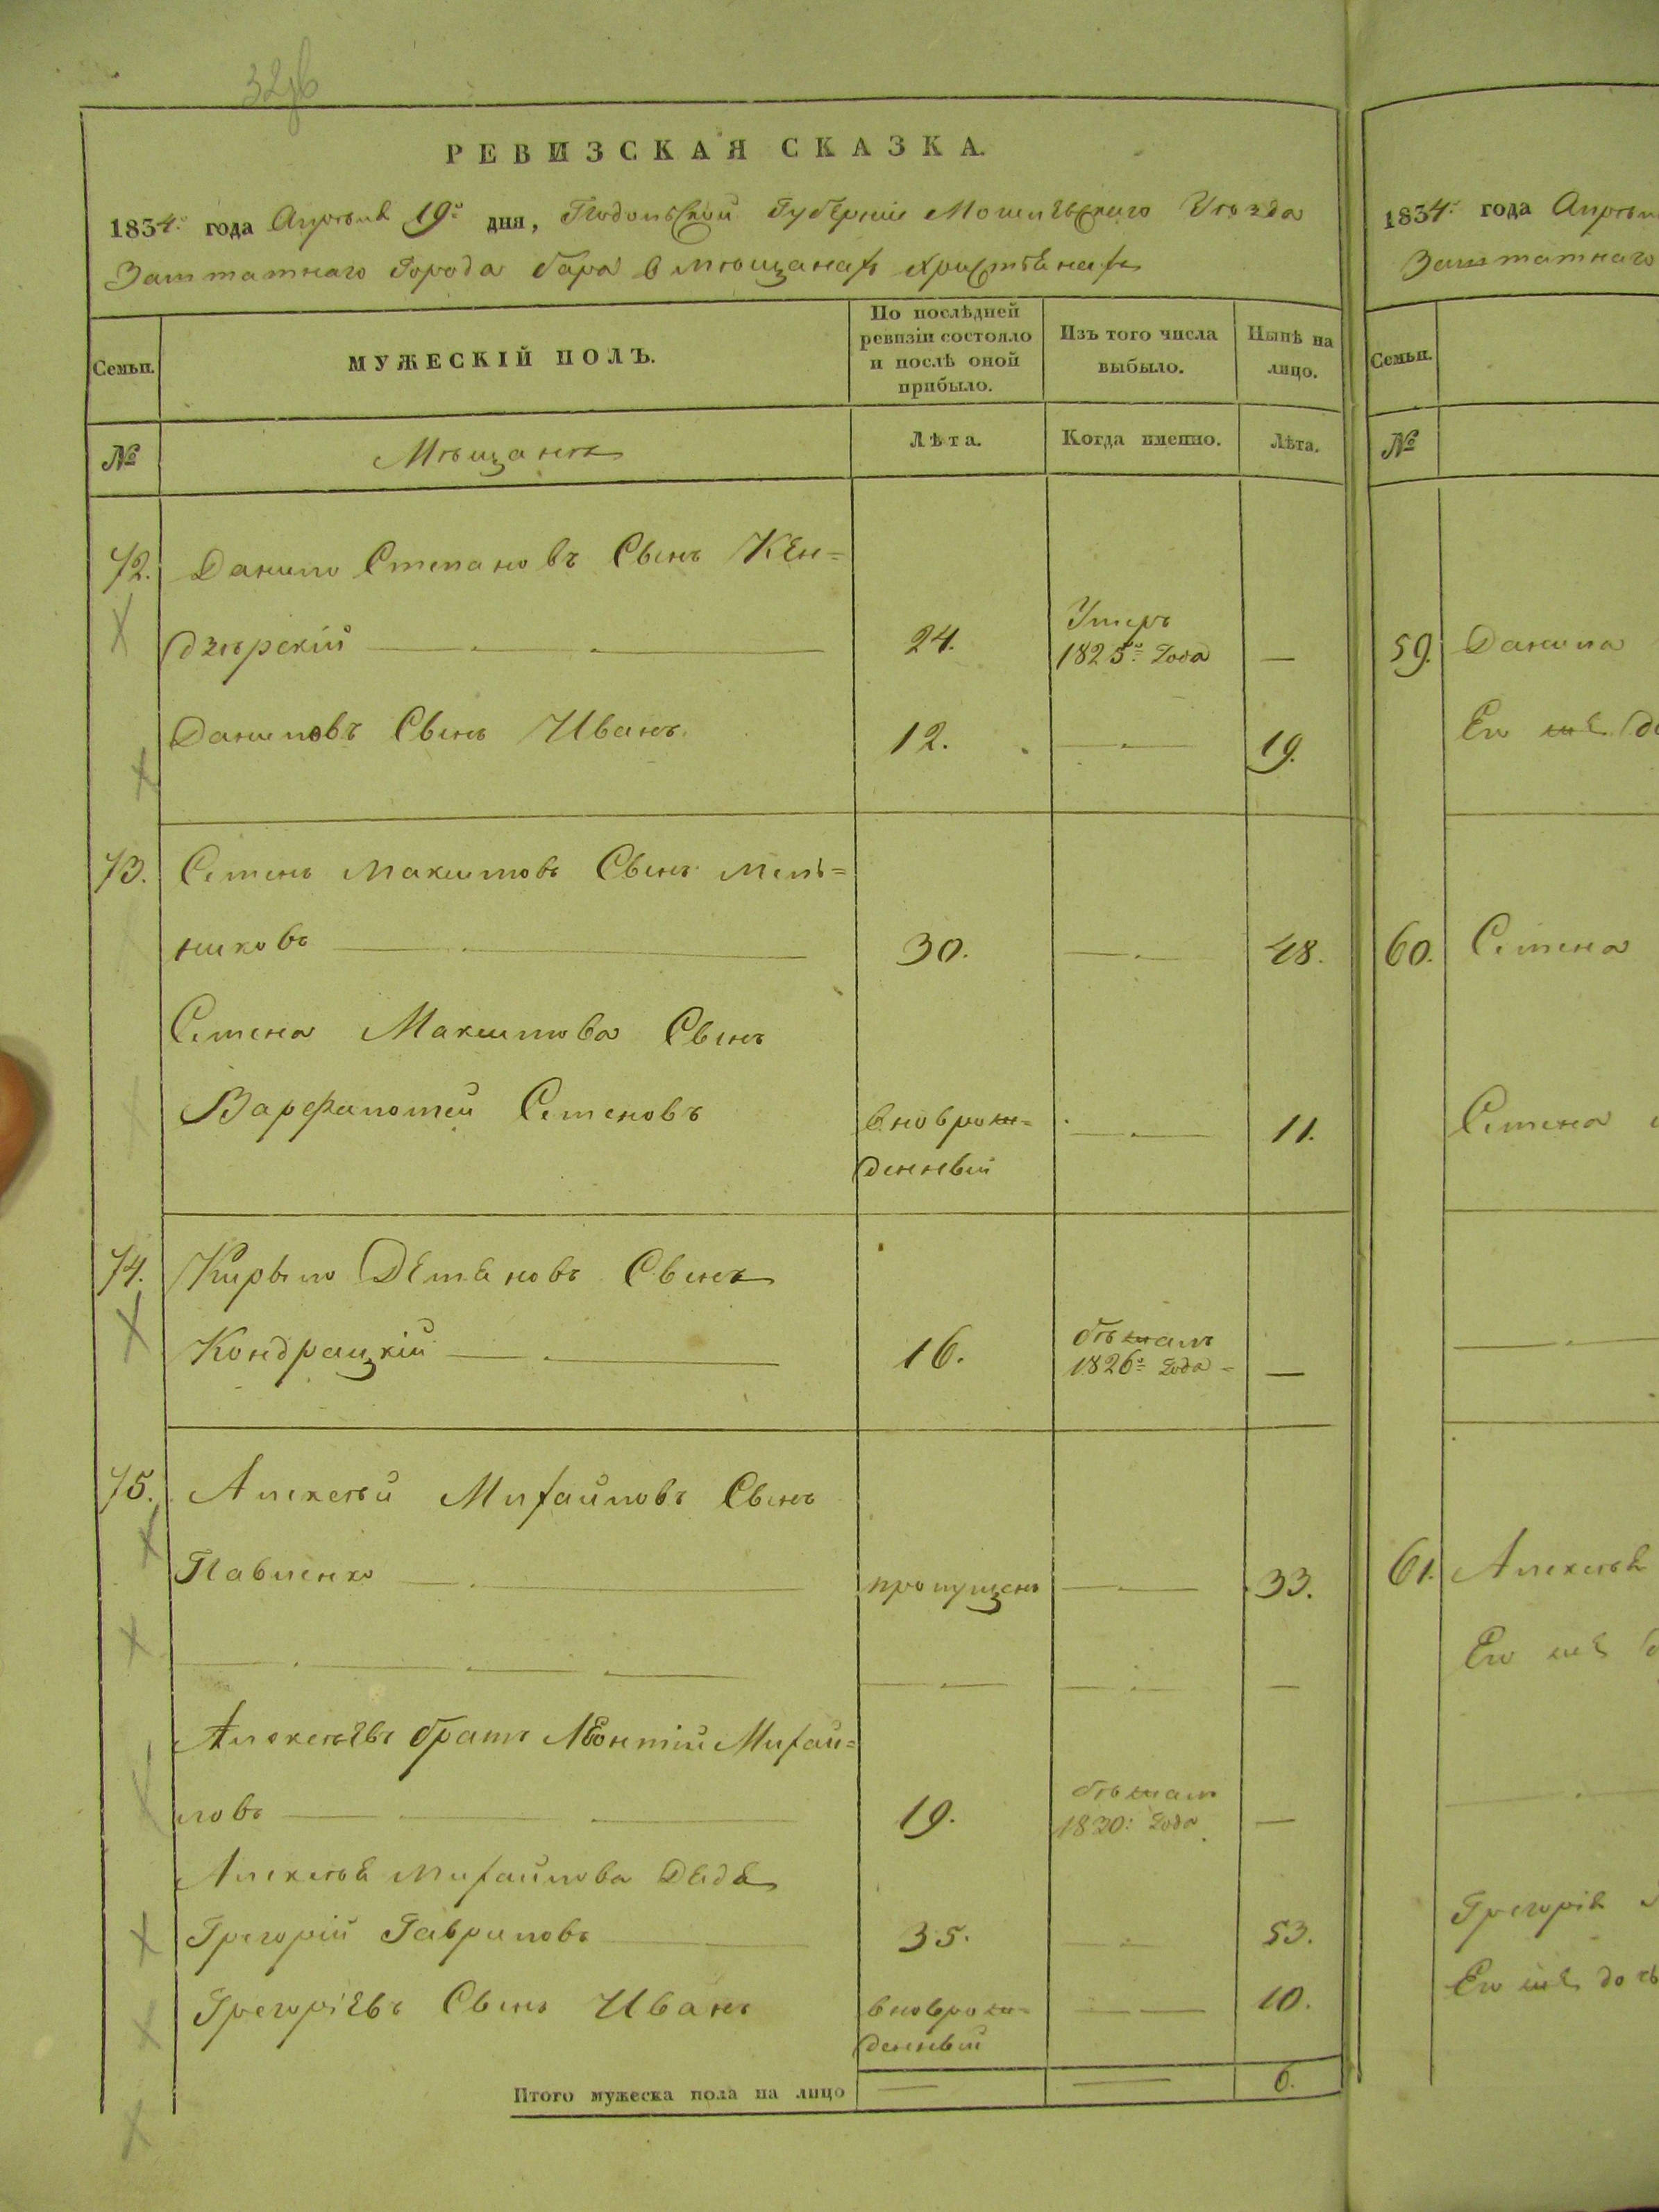 32 об
РЕВИЗСКАЯ СКАЗКА.
1834го года Апрѣля 19го дня, Подольской Губерніи Могилевского Уѣзда
Заштатнаго Города Бара о мѣщанахъ христіянахъ
Семьи.
МУЖЕСКІЙ ПОЛЪ.
По послѣдней ревизіи состояло и послѣ оной прибыло.
Изъ того числа выбыло.
Нынѣ на лицо.
№
Мѣщане
Лѣта.
Когда именно.
Лѣта.
72. Данило Степановъ Сынъ Кен=
дзѣрскій 24. Умеръ 1825го Года —
Даниловъ Сынъ Иванъ 12. 19.
73. Семенъ Максимовъ Сынъ Мель=
никовъ 30. 48.
Семена Максимова Сынъ
Варфаломей Семеновъ вноврож=
денный 11.
74. Кирыло Демяновъ Сынъ
Кондрацкій 16. бѣжалъ 1826го Года —
75. Алексѣй Михайловъ Сынъ
Павленко пропущенъ 33.
Алексѣевъ братъ Леонтій Михай=
ловъ 19. бѣжалъ 1830: Года —
Алексѣя Михайлова Дядя
Грегорій Гавриловъ 35. 53.
Грегоріевъ Сынъ Иванъ вноврож=
денный 10.
Итого мужеска пола на лицо 6.
1834го года Апрѣл
Заштатнаго
Семьи.
№
59. Данила
Его же
60. Семена
Семена
61. Алексѣя
Его же
Грегорія
Его же доч